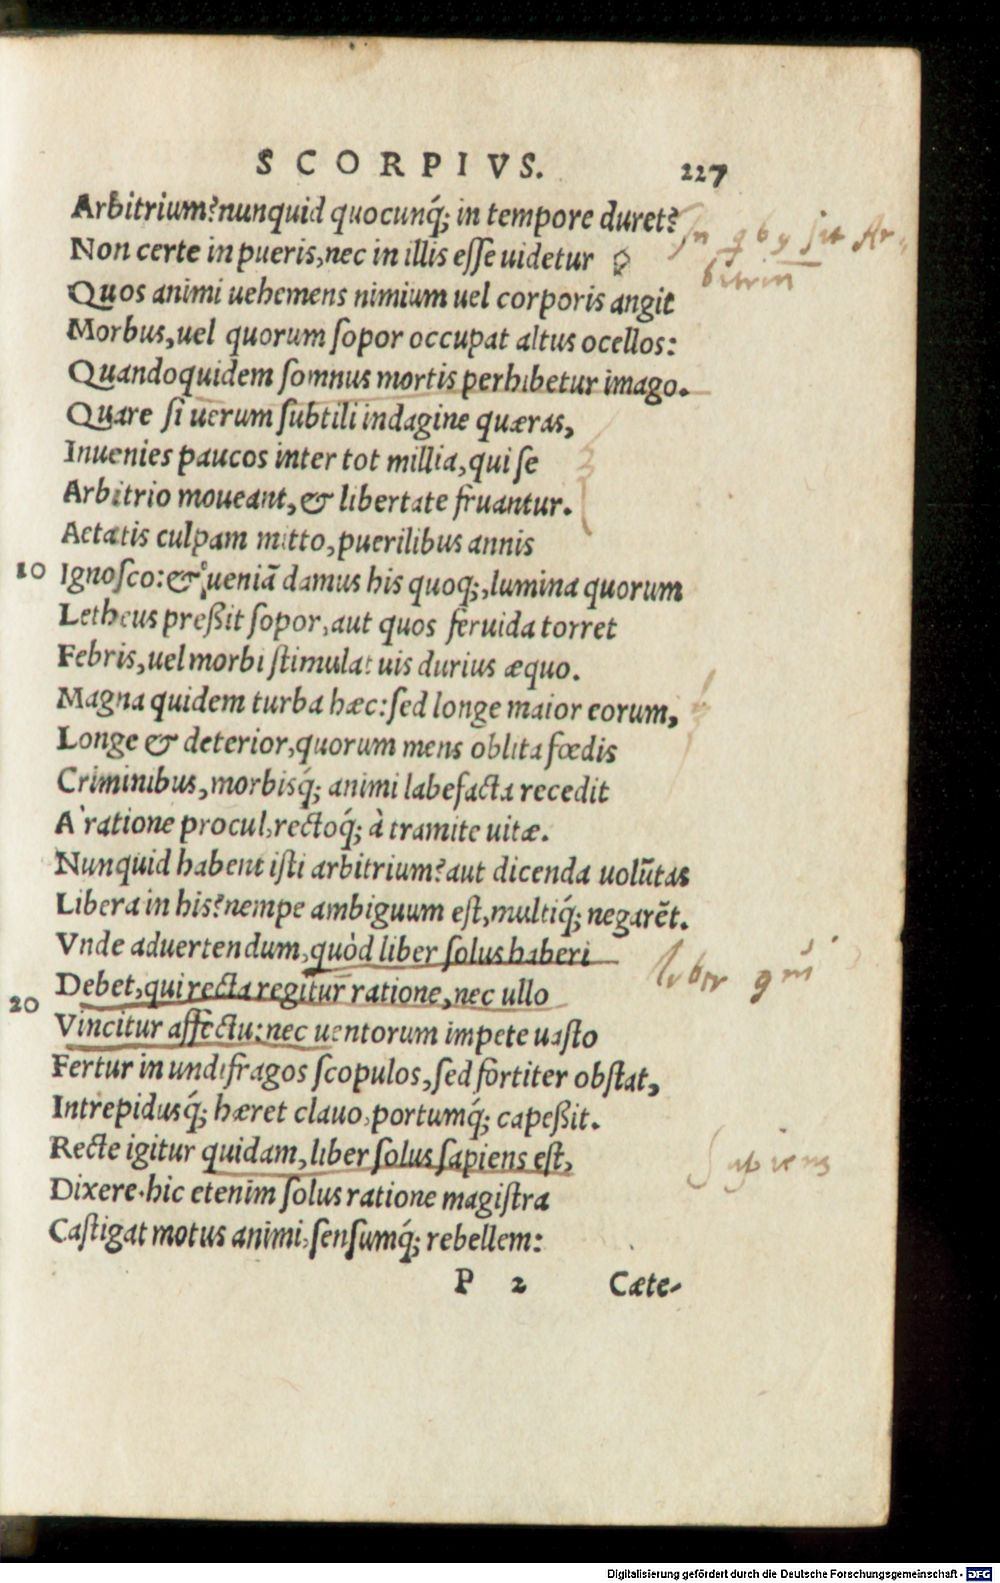 SCORPIVS. 227
Arbitrium? nunquid quocunq́; in tempore duret?
Non certe in pueris, nec in illis eſſe uidetur
In qbꝫ sit Ar-
bitriū
Quos animi uehemens nimium uel corporis angit
Morbus, uel quorum ſopor occupat altus ocellos:
Quandoquidem ſomnus mortis perhibetur imago.
Quare ſi uerum ſubtili indagine quæras,
Inuenies paucos inter tot millia, qui ſe
Arbitrio moueant, & libertate fruantur.
Aetatis culpam mitto, puerilibus annis
10 Ignoſco: & ueniã damus his quoq;, lumina quorum
Letheus preßit ſopor, aut quos feruida torret
Febris, uel morbi ſtimulat uis durius æquo.
Magna quidem turba hæc: ſed longe maior eorum,
Longe & deterior, quorum mens oblita fœdis
Criminibus, morbisq́; animi labefacta recedit
A' ratione procul, rectoq́; à tramite uitæ.
Nunquid habent iſti arbitrium? aut dicenda uolũtas
Libera in his? nempe ambiguum eſt, multiq́; negarẽt.
Vnde aduertendum, quòd liber ſolus haberi
liber qui
20 Debet, qui recta regitur ratione, nec ullo
Vincitur affectu: nec uentorum impete uaſto
Fertur in undifragos ſcopulos, ſed fortiter obſtat,
Intrepidusq́; hæret clauo, portumq́; capeßit.
Recte igitur quidam, liber ſolus ſapiens eſt,
Sapiens
Dixere. hic etenim ſolus ratione magiſtra
Caſtigat motus animi, ſenſumq́; rebellem:
P 2 Cæte-
Digitalisierung gefördert durch die Deutsche Forschungsgemeinschaft - DFG